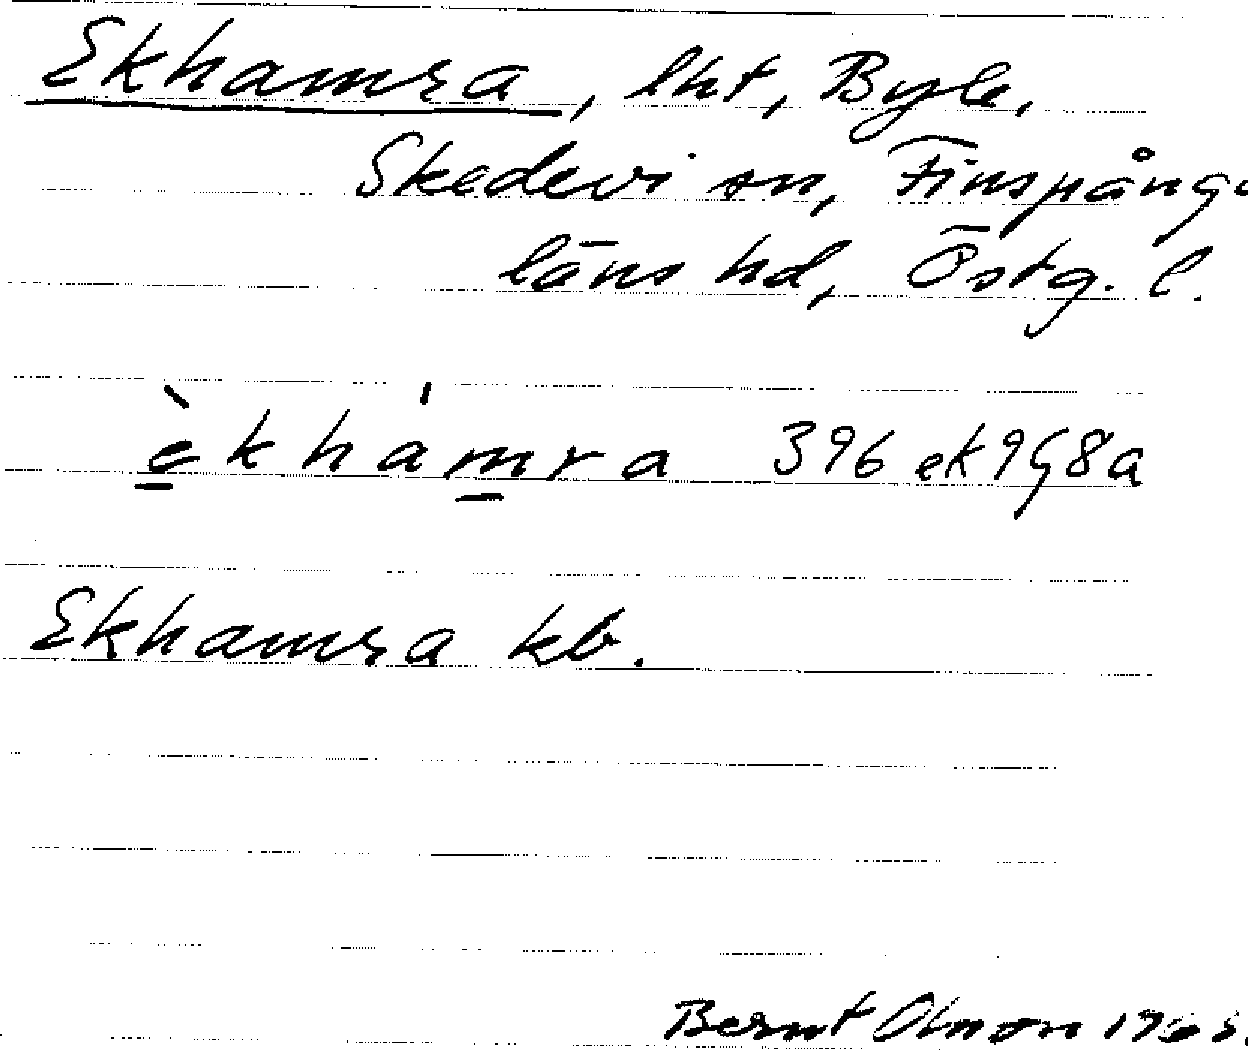 Ekhamra, lht, Byle,
Skedevi sn, Finspånga
läns hd, Östg. l.
èkhámra 396 ek9G8a
Ekhamra kb.
Bernt Olsson 1965.